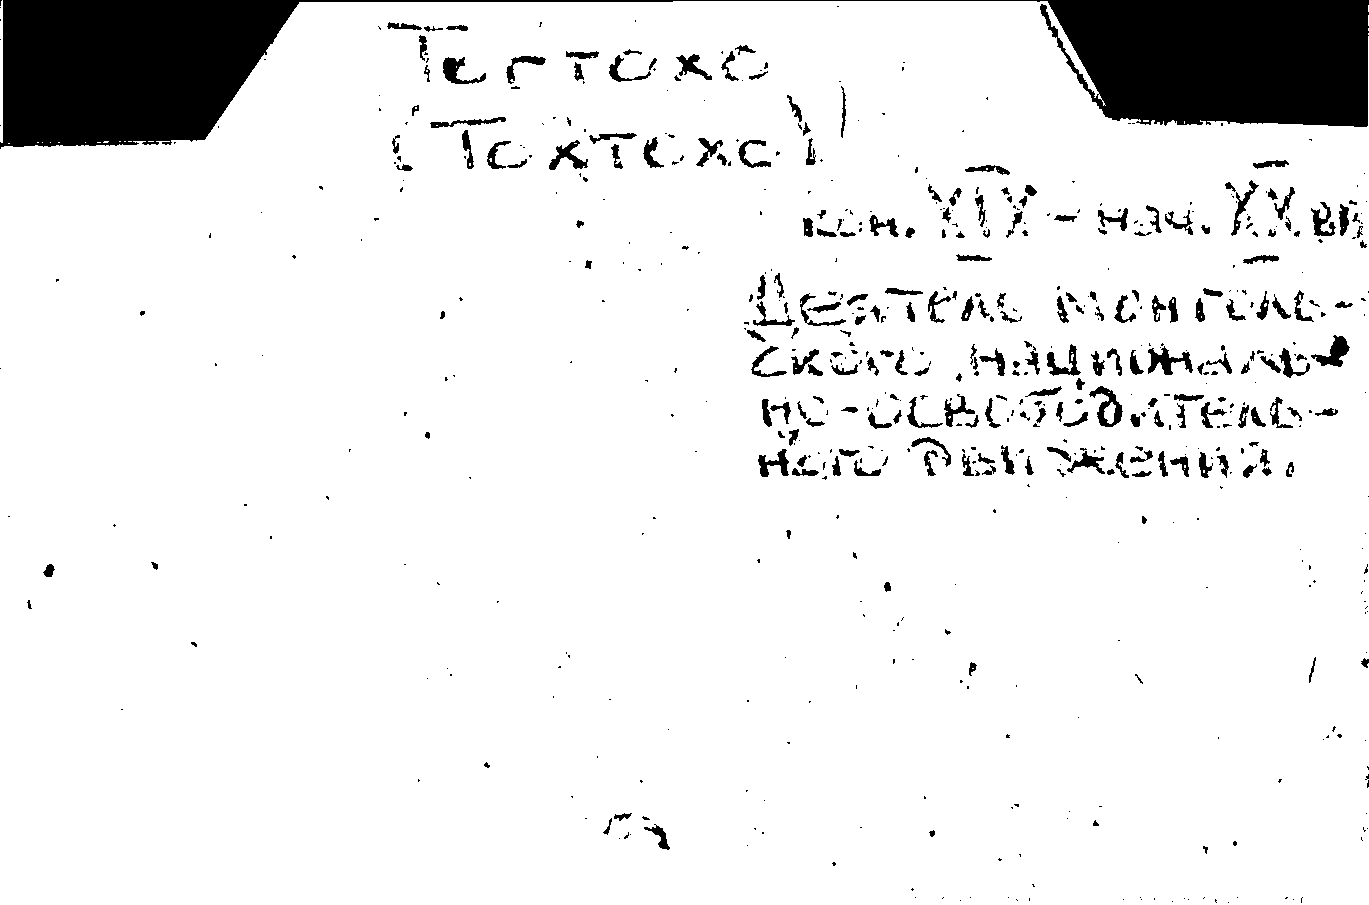 Тогтохо
(Тохтохо)
кон. XIX - нач. XX вв
Деятель монголь-
ского националь-
но-освободитель-
ного движения.